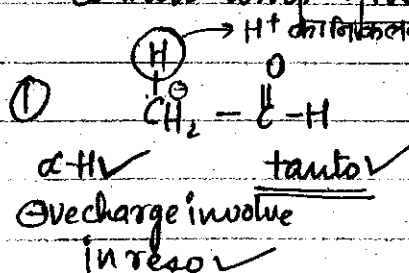 → H⁺ का निकलन
H O
① CH₂ - C - H
α-H✓ tauto✓
⊖vecharge involve
in reso ✓